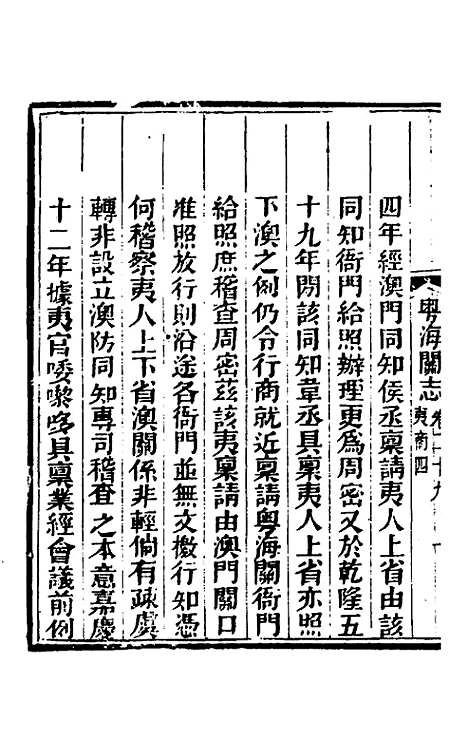 粵海關志 卷二十九 夷商四
四年經澳門同知侯丞稟請夷人上省由該
同知衙門給照辦理更爲周密又於乾隆五
十九年閉該同知韋丞具稟夷人上省亦照
下澳之例仍令行商就近稟請粵海關衙門
給照庶稽查周密茲該夷稟請由澳門關口
准照放行則沿途各衙門並無文檄行知憑
何稽察夷人上下省澳關係非輕倘有疎虞
轉非設立澳防同知專司稽查之本意嘉慶
十二年據夷官喽嚟哆具稟業經會議前例